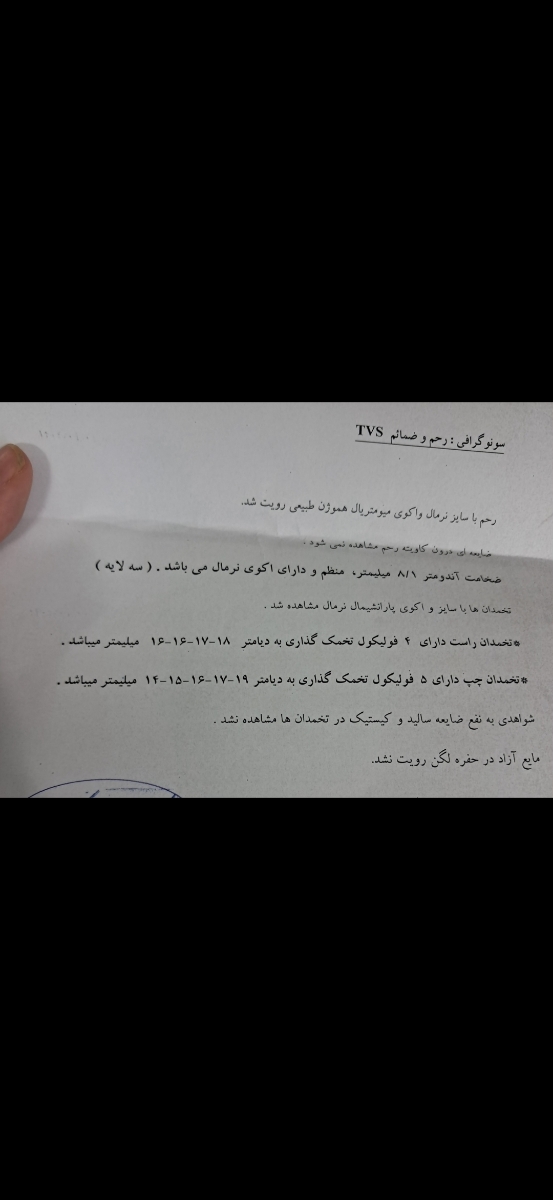 سونوگرافی : رحم و ضمائم TVS
رحم با سایز نرمال واکوی میومتریال هموژن طبیعی رویت شد.
ضایعه ای درون کاویته رحم مشاهده نمی شود .
ضخامت آندومتر ۸/۱ میلیمتر، منظم و دارای اکوی نرمال می باشد . ( سه لایه )
تخمدان ها با سایز و اکوی پارانشیمال نرمال مشاهده شد .
*تخمدان راست دارای ۴ فولیکول تخمک گذاری به دیامتر ۱۸-۱۷-۱۶-۱۶ میلیمتر میباشد .
*تخمدان چپ دارای ۵ فولیکول تخمک گذاری به دیامتر ۱۹-۱۷-۱۶-۱۵-۱۴ میلیمتر میباشد .
شواهدی به نفع ضایعه سالید و کیستیک در تخمدان ها مشاهده نشد .
مایع آزاد در حفره لگن رویت نشد.